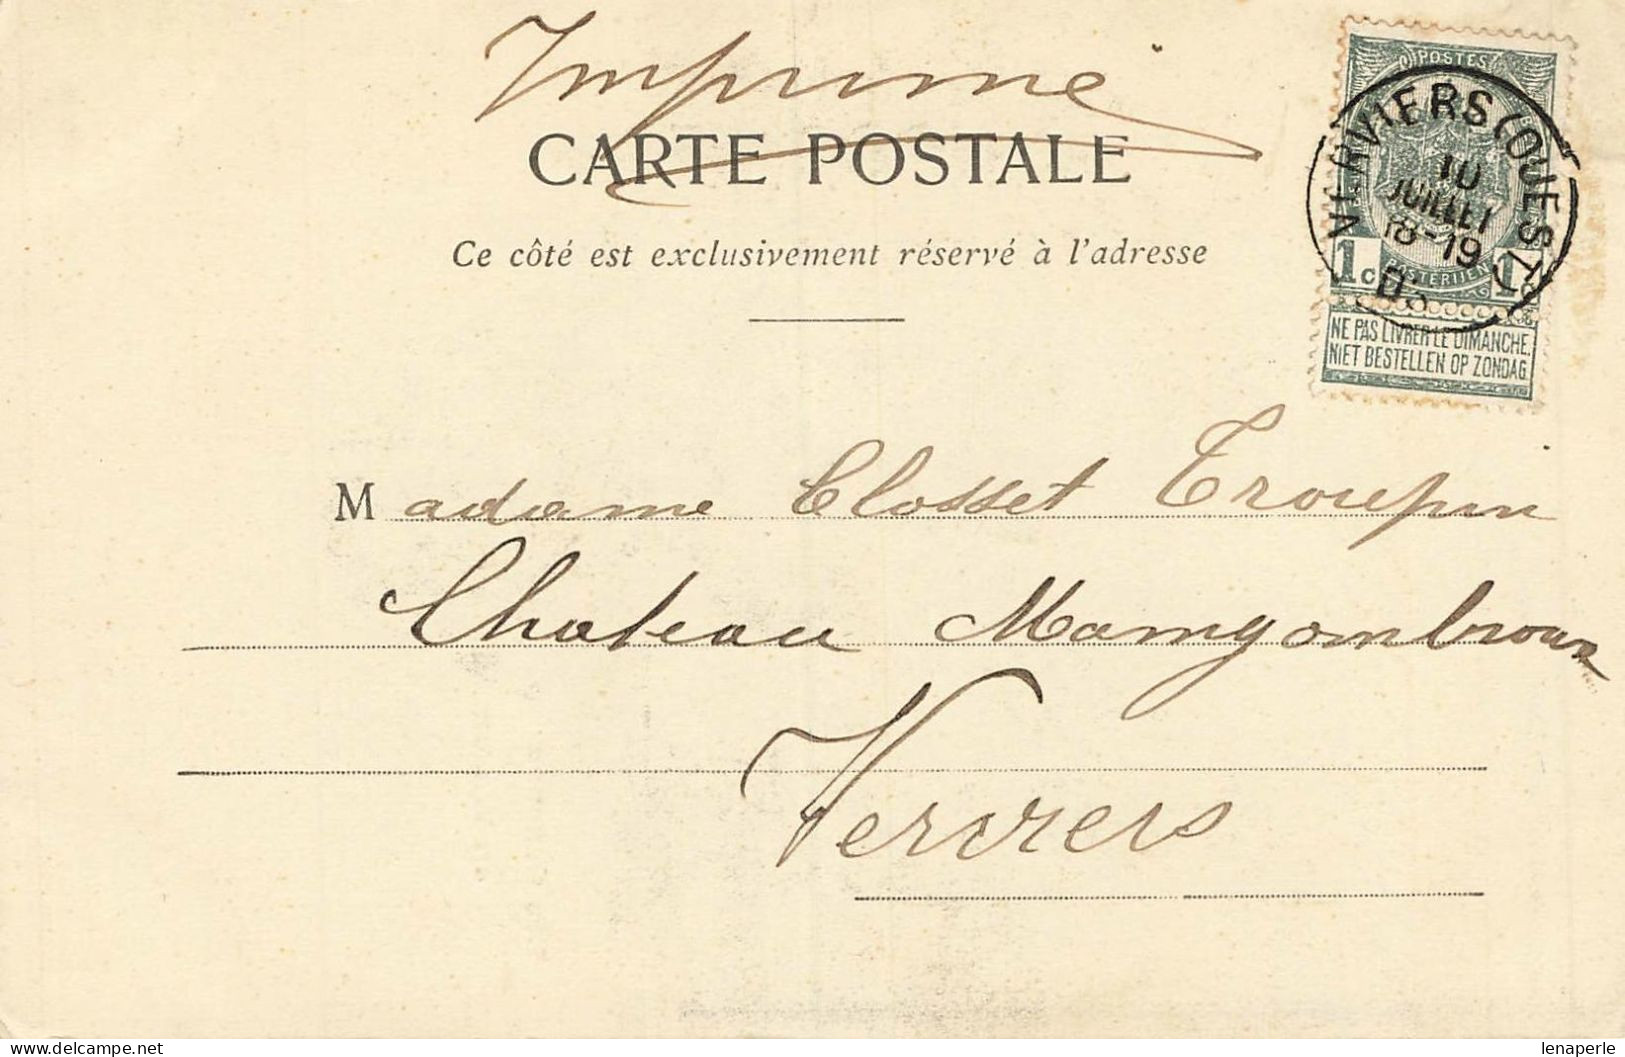 Imprimé
CARTE POSTALE
Ce côté est exclusivement réservé à l'adresse
POSTES
VERVIERS (OUEST)
10
JUILLET
18-19
1c
POSTERIJEN
1
NE PAS LIVRER LE DIMANCHE.
NIET BESTELLEN OP ZONDAG.
Madame Closset Troupin
Chateau Mangombroux
Verviers
lenaperle